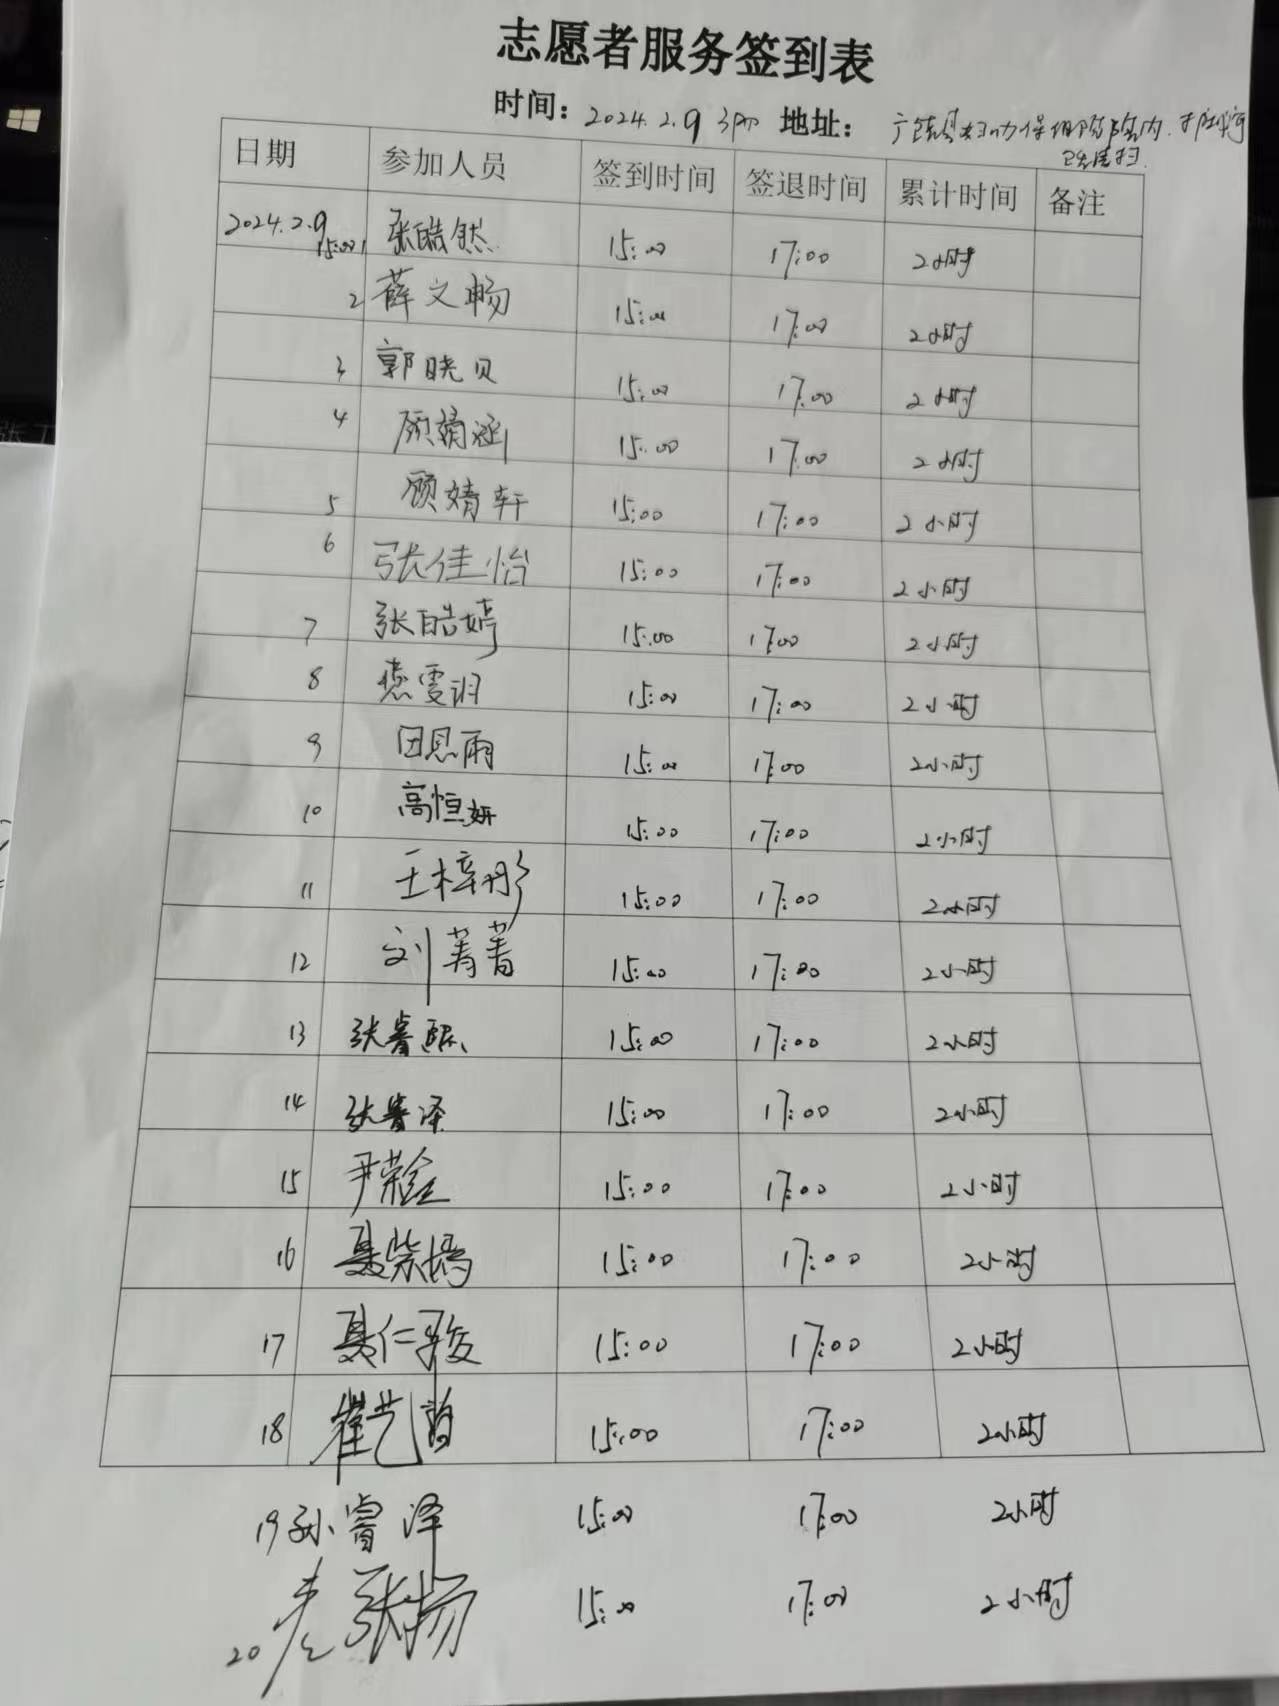 志愿者服务签到表
时间: 2024.2.9 3pm 地址: 广饶县妇幼保
日期 参加人员 签到时间 签退时间 累计时间 备注
2024.2.9 15:00 1 张皓然 15:00 17:00 2小时
2 薛文畅 15:00 17:00 2小时
3 郭晓贝 15:00 17:00 2小时
4 顾婧涵 15:00 17:00 2小时
5 顾婧轩 15:00 17:00 2小时
6 张佳怡 15:00 17:00 2小时
7 张皓婷 15:00 17:00 2小时
8 雯 15:00 17:00 2小时
9 田思雨 15:00 17:00 2小时
10 高恒妍 15:00 17:00 2小时
11 王梓彤 15:00 17:00 2小时
12 刘菁菁 15:00 17:00 2小时
13 张睿 15:00 17:00 2小时
14 张睿泽 15:00 17:00 2小时
15 尹荣 15:00 17:00 2小时
16 聂紫嫣 15:00 17:00 2小时
17 聂仁骏 15:00 17:00 2小时
18 崔艺 15:00 17:00 2小时
19 孙睿泽 15:00 17:00 2小时
20 张扬 15:00 17:00 2小时